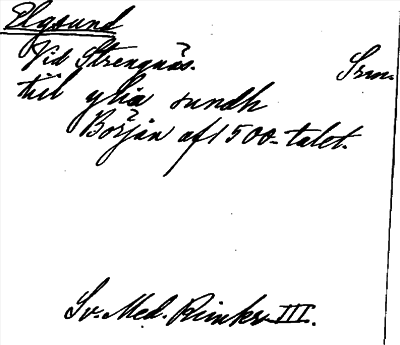 Elgsund
Vid Strengnäs. Srm.
till ylia sundh
Början af 1500-talet.
Sv. Med. Rimkr. III.